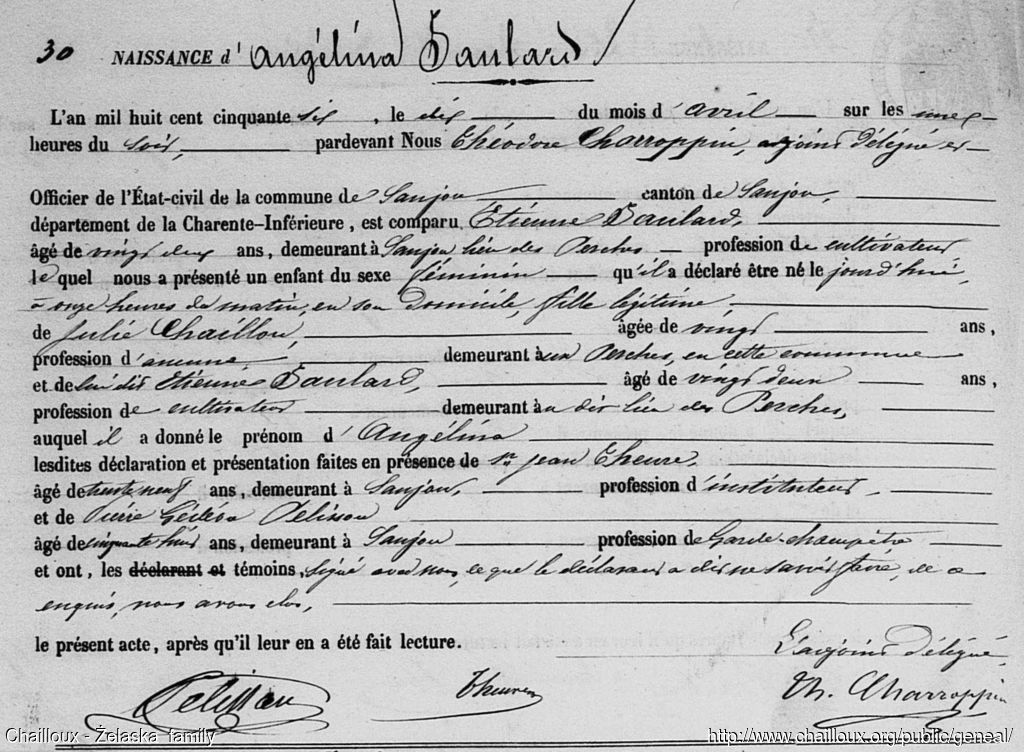 30 NAISSANCE d' Angélina Baulard
L'an mil huit cent cinquante six, le dix du mois d'avril sur les unes
heures du soir, pardevant Nous Théodore Charroppin, adjoint délégué
Officier de l'État-civil de la commune de Saujon canton de Saujon,
département de la Charente-Inférieure, est comparu Etienne Baulard,
âgé de vingt deux ans, demeurant à Saujon lieu des Perches profession de cultivateur
lequel nous a présenté un enfant du sexe féminin qu'il a déclaré être né le jourd'hui,
à onze heures du matin, en son domicile, fille légitime,
de Julie Chaillou, âgée de vingt ans,
profession d'aucune, demeurant aux Perches, en cette commune
et de lui dit Etienne Baulard, âgé de vingt deux ans,
profession de cultivateur demeurant au dit lieu des Perches,
auquel il a donné le prénom d'Angélina
lesdites déclaration et présentation faites en présence de Sr Jean Theure,
âgé de trente neuf ans, demeurant à Saujon, profession d'instituteur,
et de Pierre Gédéon Pelisson
âgé de cinquante huit ans, demeurant à Saujon profession de Garde-champêtre
et ont, les déclarant et témoins, signé avec nous, ce que le déclarant a dit ne savoir faire, de ce
enquis, nous avons clos,
le présent acte, après qu'il leur en a été fait lecture.
L'adjoint délégué,
Pelisson Theure Th. Charroppin
Chailloux - Żelaska family http://www.chailloux.org/public/geneal/